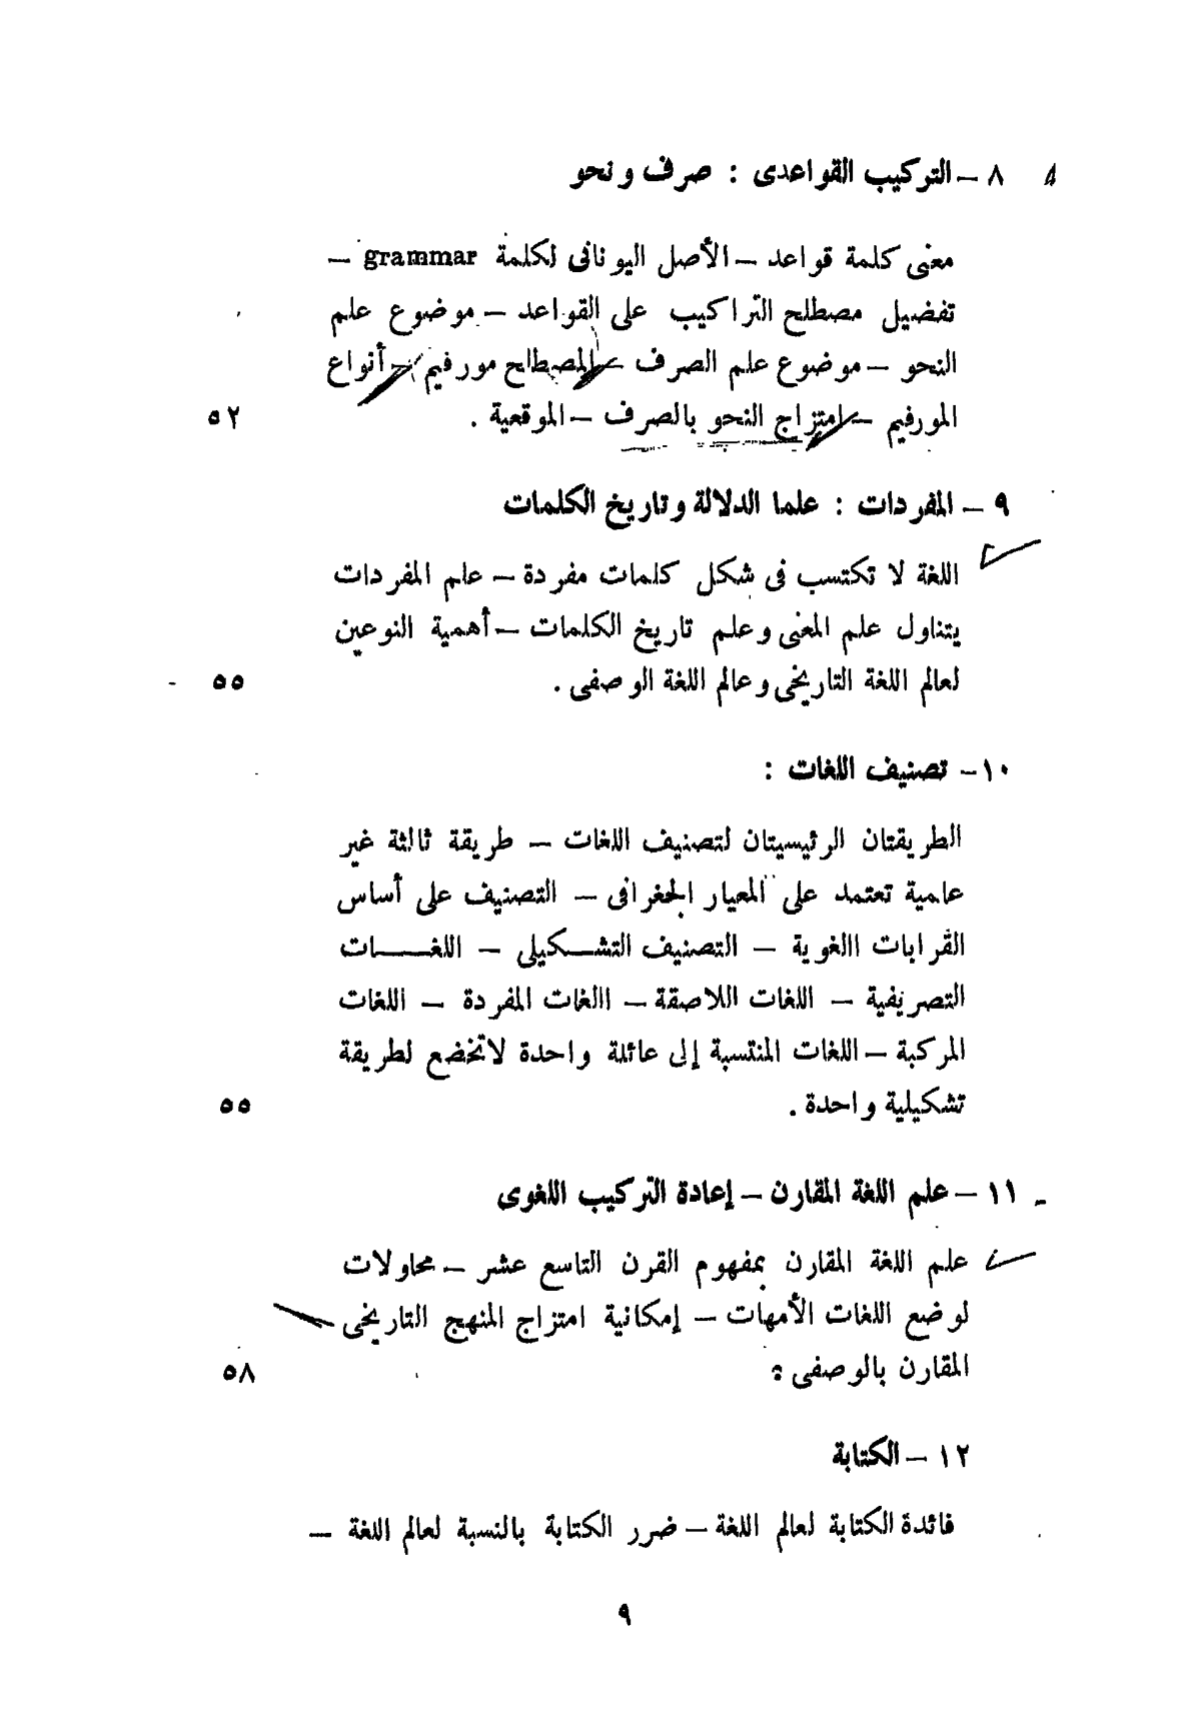 ٨ – التركيب القواعدى : صرف ونحو
معنى كلمة قواعد – الأصل اليونانى لكلمة grammar –
تفضيل مصطلح التراكيب على القواعد – موضوع علم
النحو – موضوع علم الصرف – المصطلح مورفيم – أنواع
المورفيم – امتزاج النحو بالصرف – الموقعية . ٥٢
٩ – المفردات : علما الدلالة وتاريخ الكلمات
اللغة لا تكتسب فى شكل كلمات مفردة – علم المفردات
يتناول علم المعنى وعلم تاريخ الكلمات – أهمية النوعين
لعالم اللغة التاريخى وعالم اللغة الوصفى . ٥٥
١٠ – تصنيف اللغات :
الطريقتان الرئيسيتان لتصنيف اللغات – طريقة ثالثة غير
علمية تعتمد على المعيار الجغرافى – التصنيف على أساس
القرابات اللغوية – التصنيف التشـكيلى – اللغـــات
التصريفية – اللغات اللاصقة – اللغات المفردة – اللغات
المركبة – اللغات المنتسبة إلى عائلة واحدة لاتخضع لطريقة
تشكيلية واحدة . ٥٥
١١ – علم اللغة المقارن – إعادة التركيب اللغوى
علم اللغة المقارن بمفهوم القرن التاسع عشر – محاولات
لوضع اللغات الأمهات – إمكانية امتزاج المنهج التاريخى
المقارن بالوصفى : ٥٨
١٢ – الكتابة
فائدة الكتابة لعالم اللغة – ضرر الكتابة بالنسبة لعالم اللغة –
٩